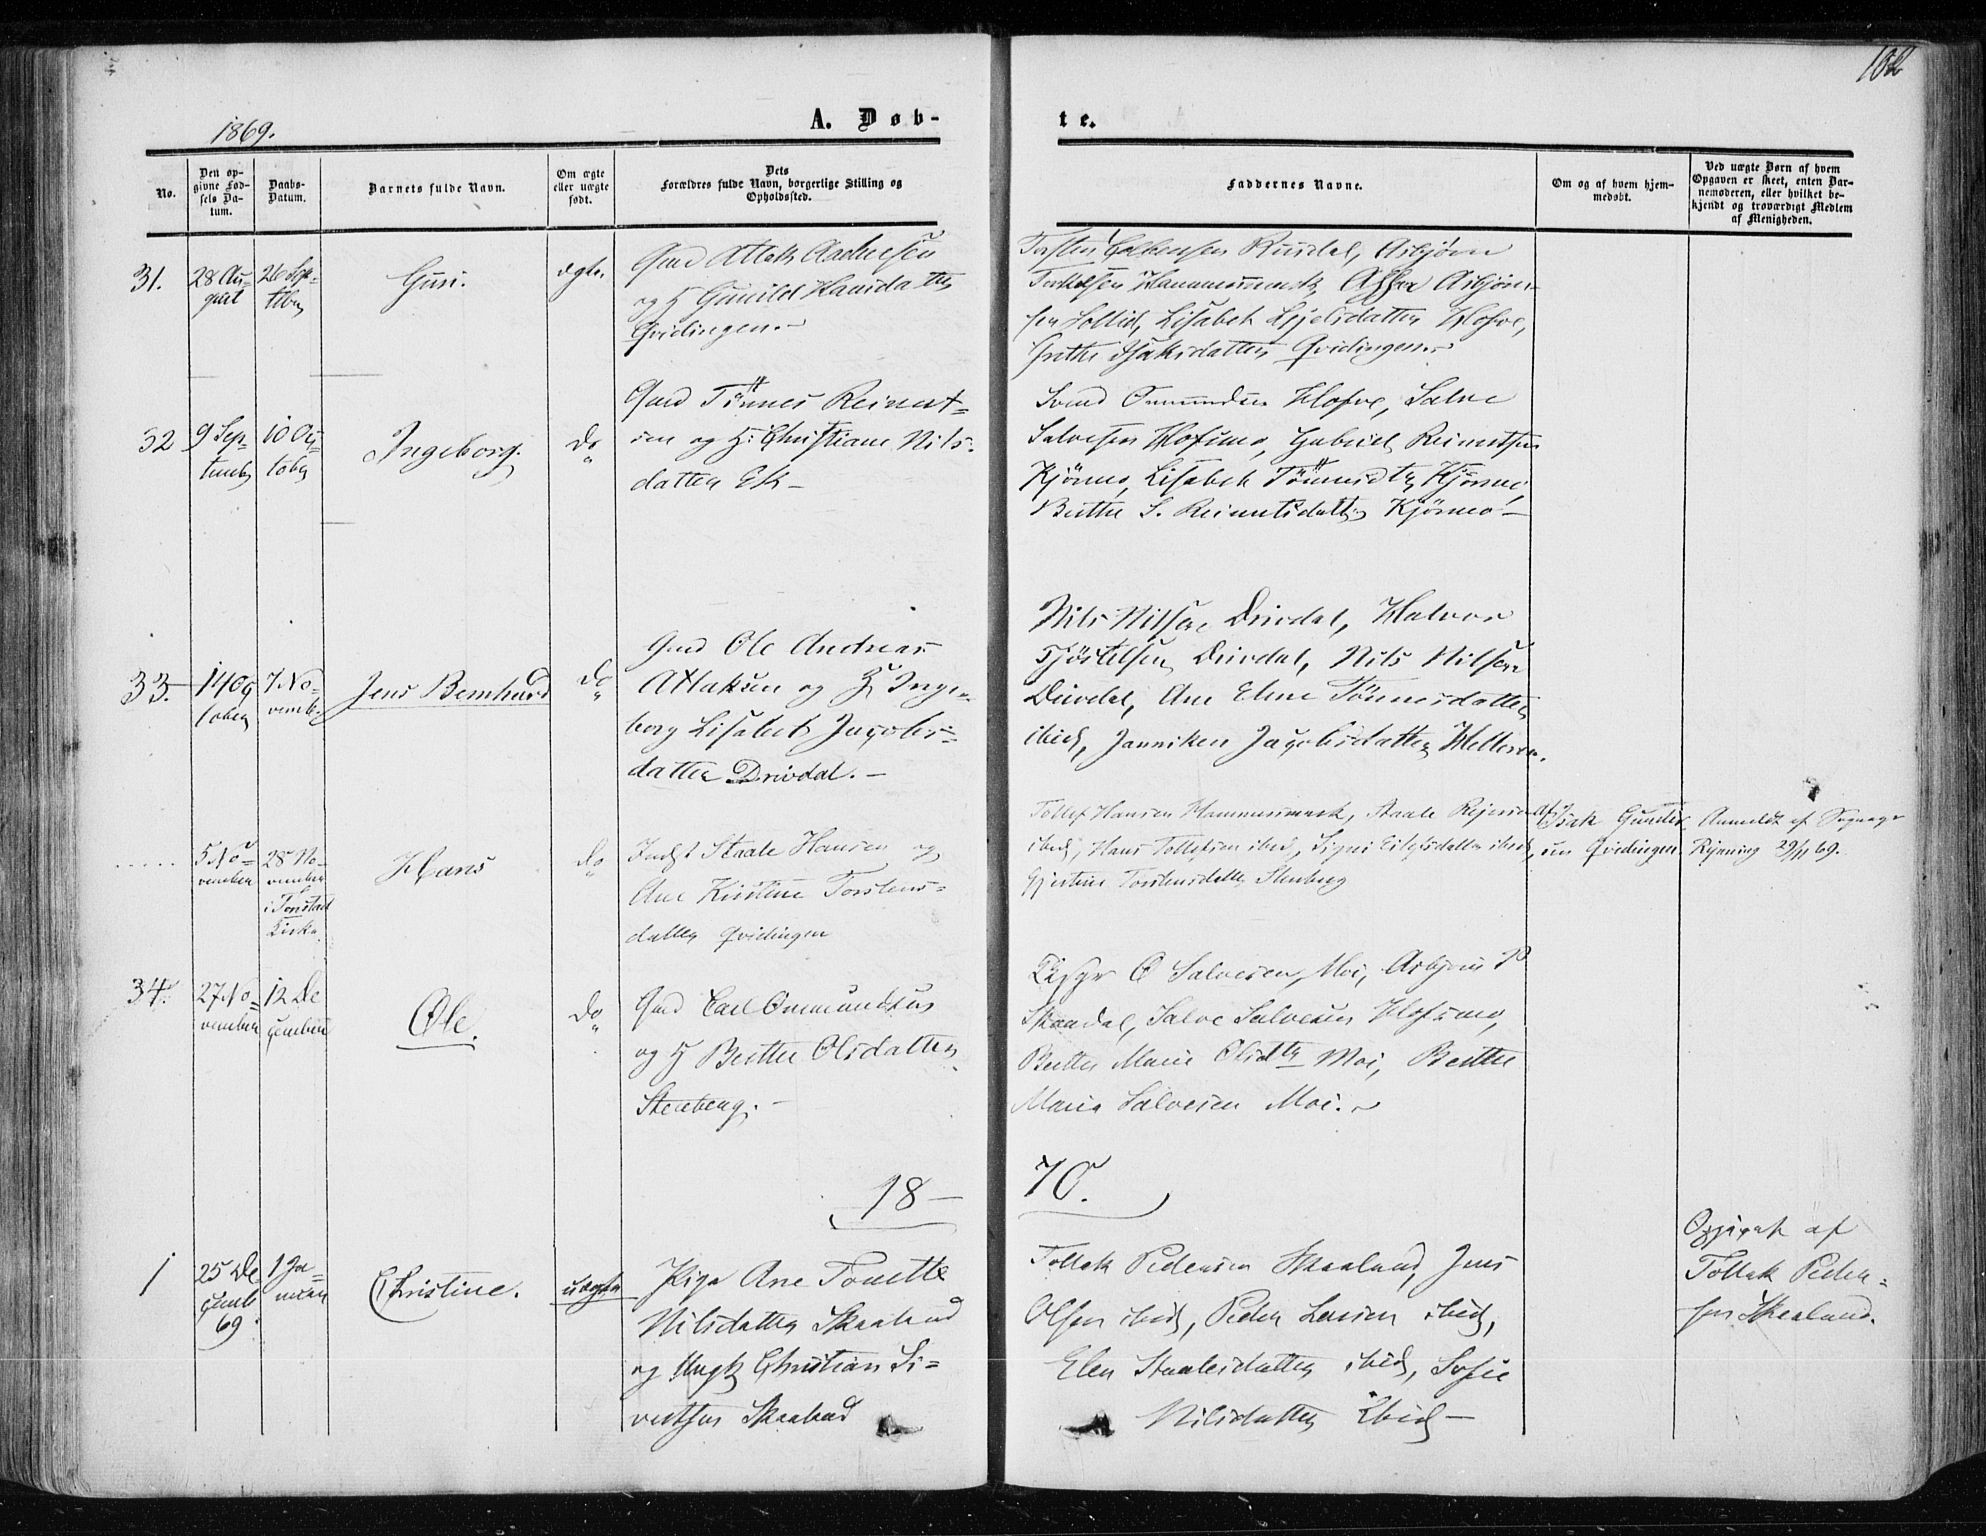 102
1869.
A. Døb-
te.
No.
Den op-
givne Fød-
sels Da-
tum.
Daabs-
Datum.
Barnets fulde Navn.
Om ægte
eller uægte
født.
Dets
Forældres fulde Navn, borgerlige Stilling og
Opholdssted.
Faddernes Navne.
Om og af hvem hjem-
medøbt.
Ved uægte Børn af hvem
Opgaven er skeet, enten Bar-
nemoderen, eller hvilket be-
kjendt og troværdigt Medlem
af Menigheden.
31.
28 Au-
gust
26 Sep-
tbr
Guri.
ægte
Gmd Atlak
og H Gunild Hansdatter
Qvidingen.
Rusdal, Asbjørn
Torkelsen Hammersmark, Asbjørn-
sen Sollid, Lisabet Kjelsdatter Hofve,
Grethe Isaksdatter Qvidingen.
32
9 Sep-
tember
10 Oc-
tober
Ingeborg.
Do
Gmd Tönnes Reinert-
sen og H: Christiane Nils-
datter Ek
Svend Ommundsen Hofve, Salve
Salvesen Hofsmo, Gabriel Reinertsen
Kjörmo, Lisabet Tönnesdtr Kjörmo,
Berthe S. Reinertsdatter Kjörmo
33.
14 Oc
tober
7 No-
vemb.
Jens Bernhard
Do
Gmd Ole Andreas
Atlaksen og H Inge-
borg Lisabet Jacobs-
datter Drivdal.
Nils Nilsen Drivdal, Halvor
Tjöstelsen Drivdal, Nils Nilsen
Drivdal, Ane Elene Tönnesdatter
ibid, Janniken Jacobsdatter Helleren.
5 No-
vember
28 No-
vember
i Tonstad
Kirke
Hans
Do
Indst Staale Hansen og
Ane Kirstine Torstens-
datter Qvidingen
Tollef Hansen Hammersmark, Staale Reiersen
ibid, Hans Tollefsen ibid, Signi Eilefsdatter ibid,
Gjertine Torstensdatter Stenberg
af Isak Gunder-
sen Qvidingen
Anmeldt af Sognepr
29/11 69.
34.
27 No-
vember
12 De
cember
Ole.
Do
Gmd Carl Ommundsen
og H Berthe Olsdatter
Stenberg.
O Salvesen, Moi, Asbjørn P
Skaadal, Salve Salvesen Hofsmo,
Berthe Marie Olsdtr Moi, Berthe
Maria Salvesen Moi.
18
70.
1
25 De
cemb
69
1 Ja-
nuar
Christine.
uægte
Pige Ane Tonette
Nilsdatter Skaaland
og Ungk Christian Si-
vertsen Skaaland
Tollak Pedersen Skaaland, Jens
Olsen ibid, Peder Larsen ibid,
Elen Staalesdatter ibid, Sofie
Nilsdatter Ibid
Opgivet af
Tollak Peder-
sen Skaaland.